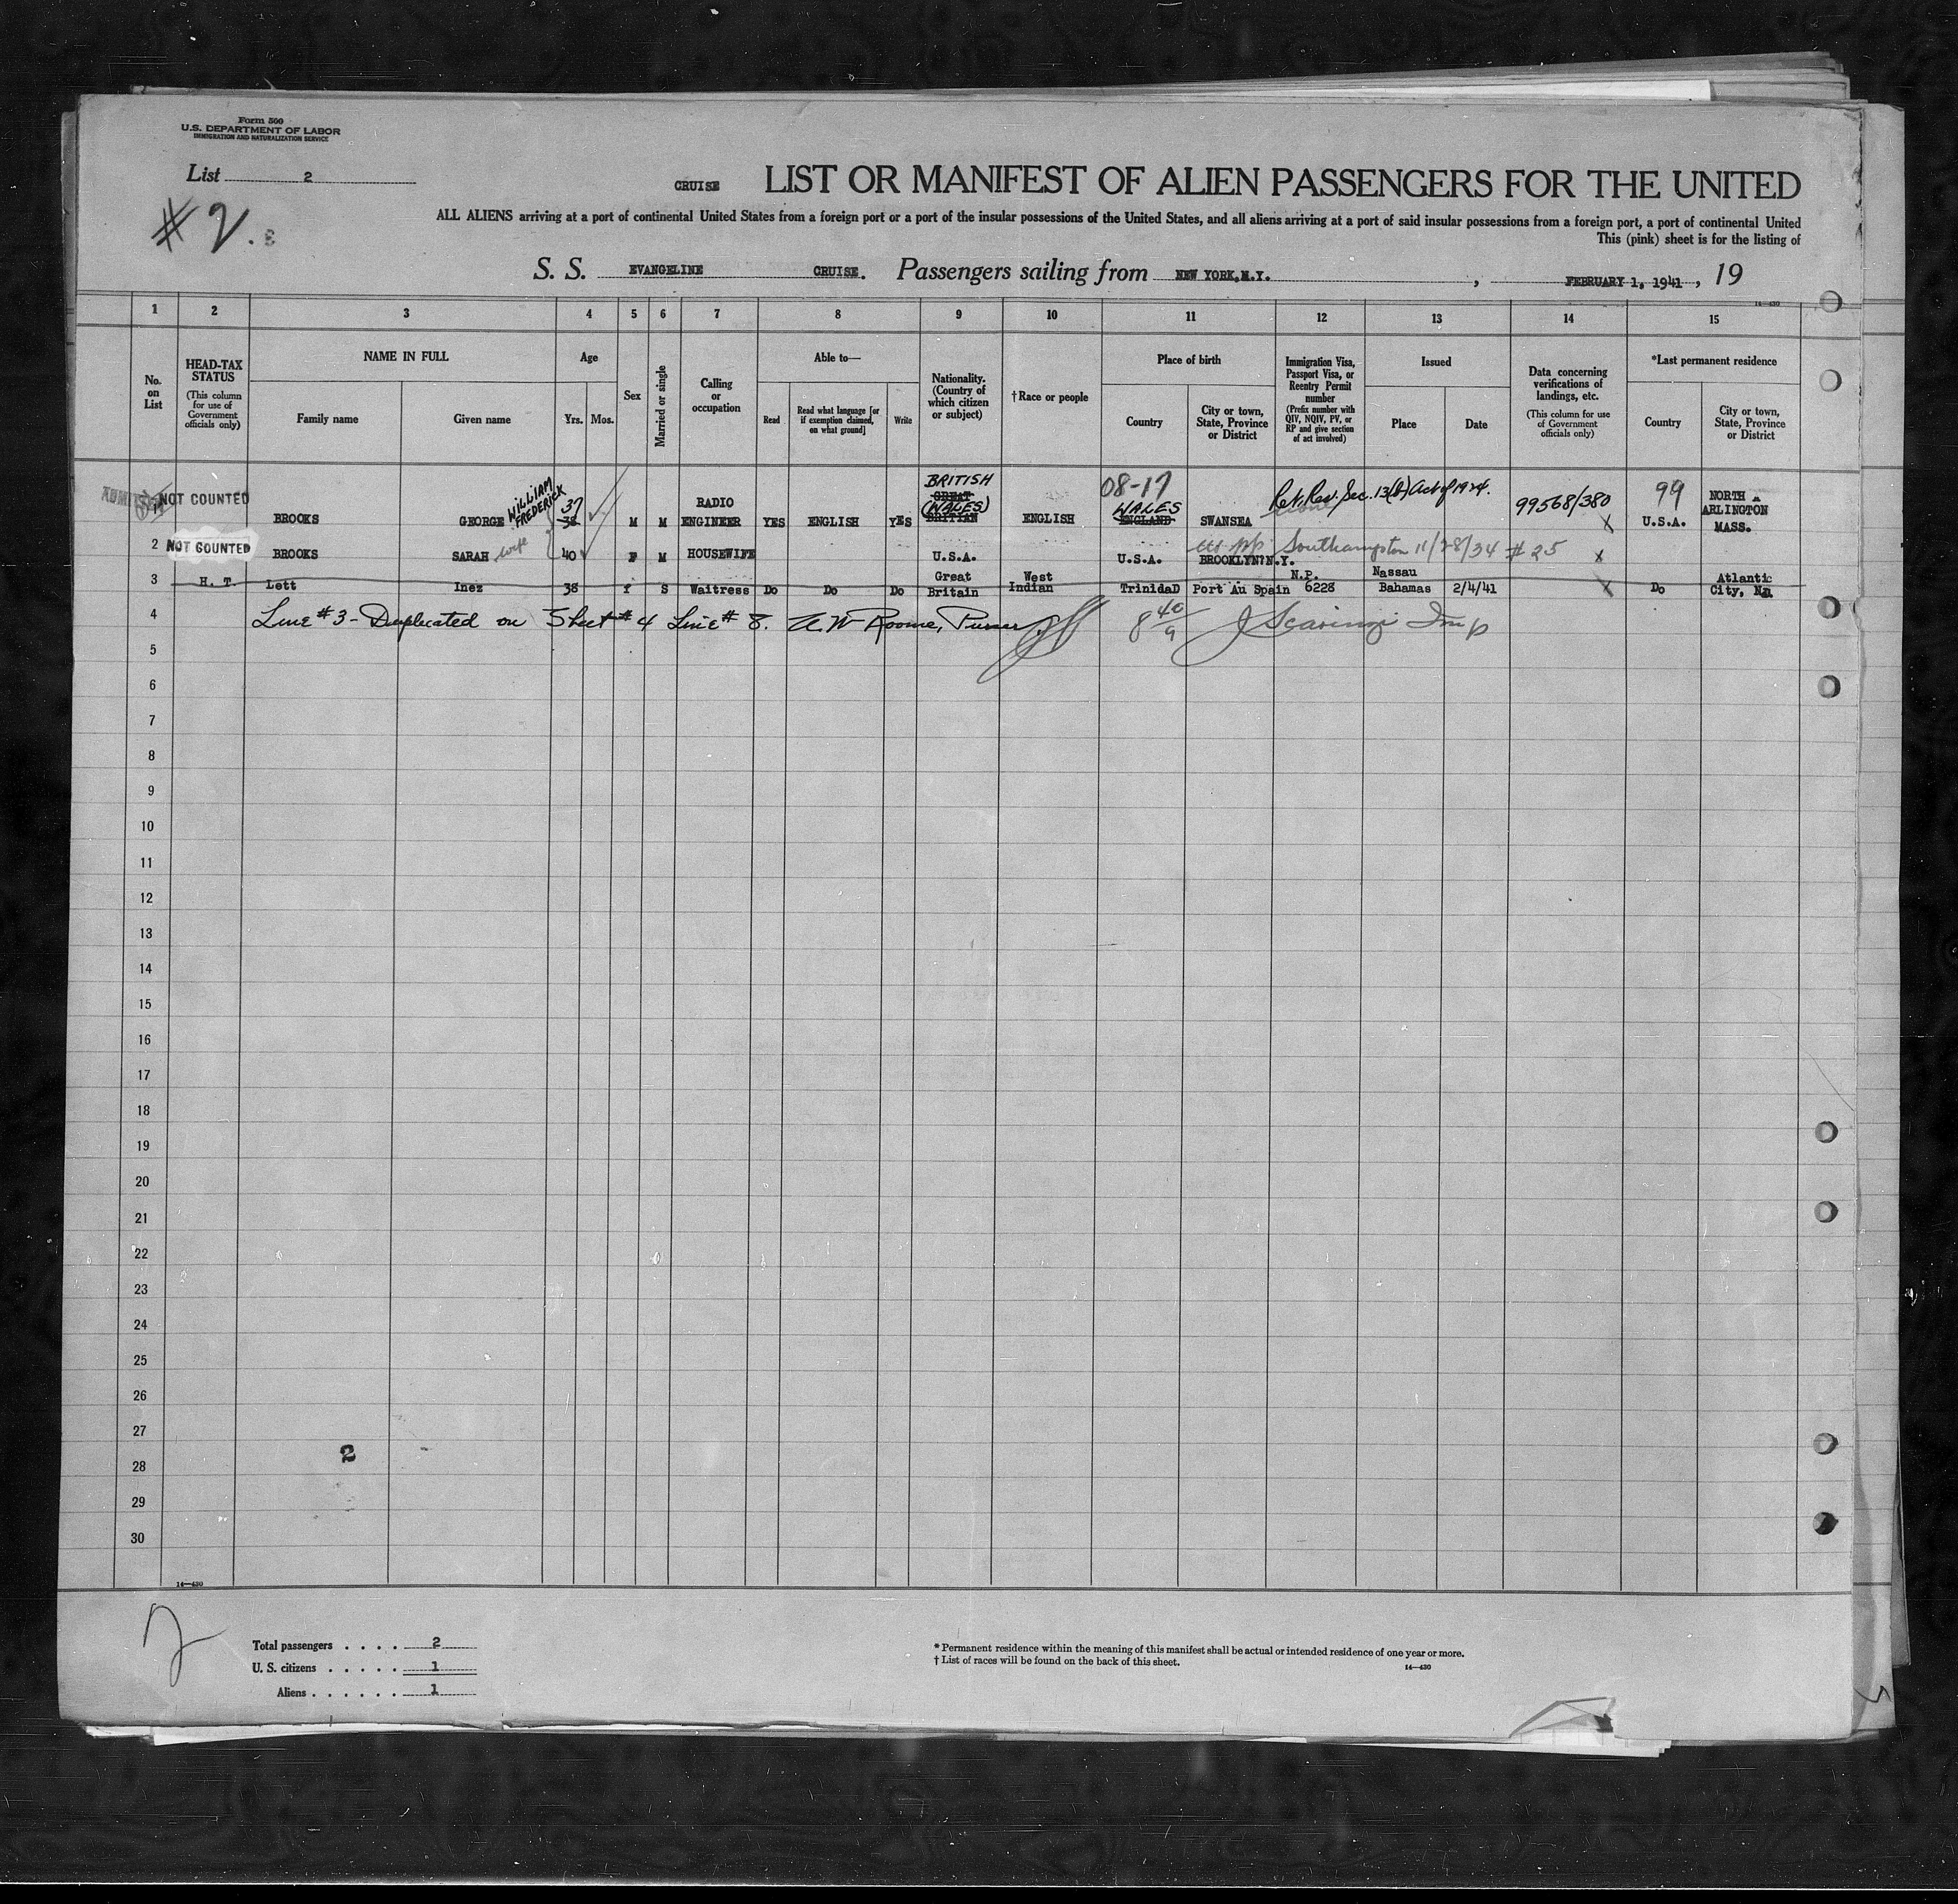 Form 500
U.S. DEPARTMENT OF LABOR
IMMIGRATION AND NATURALIZATION SERVICE
List 2
#2.
CRUISE LIST OR MANIFEST OF ALIEN PASSENGERS FOR THE UNITED
ALL ALIENS arriving at a port of continental United States from a foreign port or a port of the insular possessions of the United States, and all aliens arriving at a port of said insular possessions from a foreign port, a port of continental United
This (pink) sheet is for the listing of
S. S. EVANGELINE CRUISE. Passengers sailing from NEW YORK, N.Y. , FEBRUARY 1, 1941 , 19
14—430
1 2 3 4 5 6 7 8 9 10 11 12 13 14 15
No. on List
HEAD-TAX STATUS (This column for use of Government officials only)
NAME IN FULL
Family name
Given name
Age
Yrs. Mos.
Sex
Married or single
Calling or occupation
Able to—
Read
Read what language [or if exemption claimed, on what ground]
Write
Nationality. (Country of which citizen or subject)
†Race or people
Place of birth
Country
City or town, State, Province or District
Immigration Visa, Passport Visa, or Reentry Permit number (Prefix number with QIV, NQIV, PV, or RP and give section of act involved)
Issued
Place
Date
Data concerning verifications of landings, etc. (This column for use of Government officials only)
*Last permanent residence
Country
City or town, State, Province or District
NOT COUNTED BROOKS GEORGE WILLIAM FREDERICK 37 38 M M RADIO ENGINEER YES ENGLISH YES BRITISH GREAT (WALES) BRITIAN ENGLISH 08-17 WALES ENGLAND SWANSEA Sec. 13(b) Act of 1924. 99568/380 X 99 U.S.A. NORTH ARLINGTON MASS.
2 NOT COUNTED BROOKS SARAH wife 40 F M HOUSEWIFE U.S.A. U.S.A. BROOKLYN N.Y. Southampton 11/28/34 #25 X
3 H. T. Lett Inez 38 f S Waitress Do Do Do Great Britain West Indian TriniDaD Port Au Spain N.P. 6228 Nassau Bahamas 2/4/41 X Do Atlantic City,
4 Line #3 - Duplicated on Sheet #4 Line # 8. A.W. Roome, Purser 8 40/9 J Scaringi Insp
5
6
7
8
9
10
11
12
13
14
15
16
17
18
19
20
21
22
23
24
25
26
27
2
28
29
30
14—430
2
Total passengers . . . . 2
U. S. citizens . . . . . 1
Aliens . . . . . . 1
* Permanent residence within the meaning of this manifest shall be actual or intended residence of one year or more.
† List of races will be found on the back of this sheet.
14—430